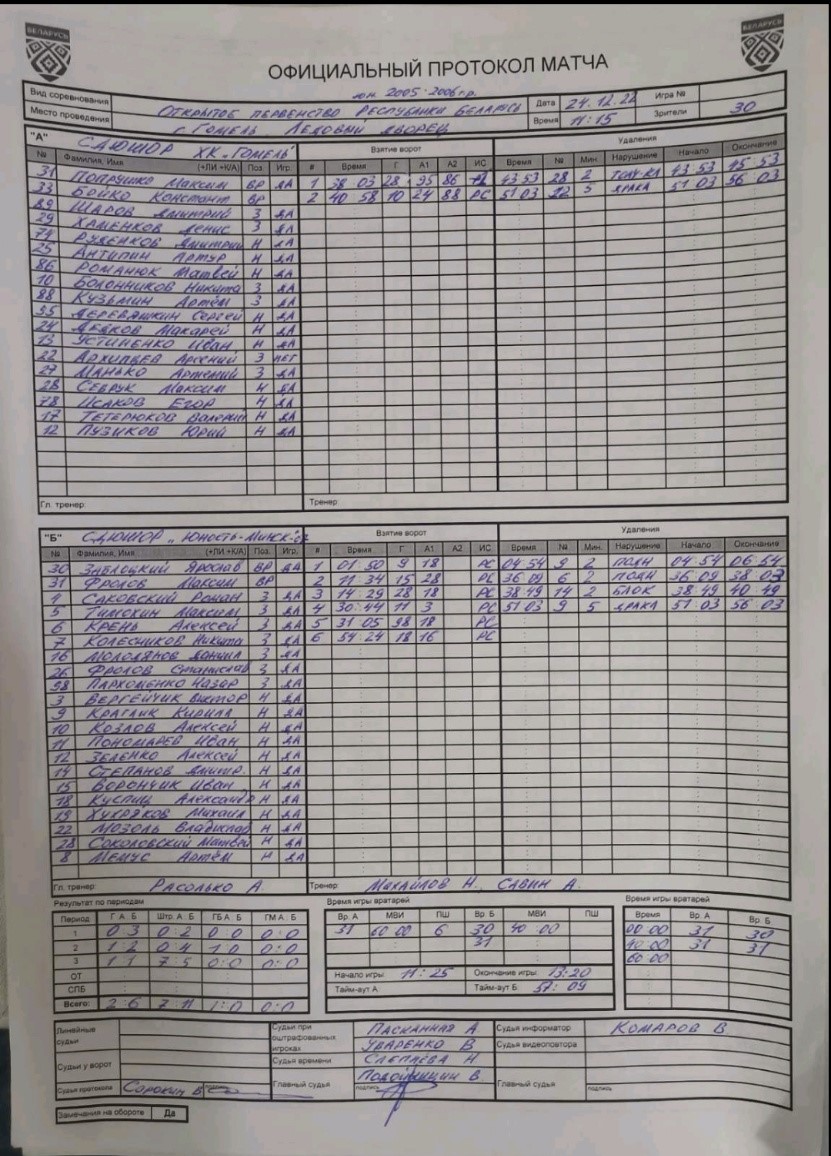 БЕЛАРУСЬ
БЕЛАРУСЬ
ОФИЦИАЛЬНЫЙ ПРОТОКОЛ МАТЧА
Вид соревнования юн. 2005-2006 г.р. ОТКРЫТОЕ ПЕРВЕНСТВО РЕСПУБЛИКИ БЕЛАРУСЬ Дата 24.12.22 Игра №
Место проведения г. ГОМЕЛЬ ЛЕДОВЫЙ ДВОРЕЦ Время 11:15 Зрители 30
"А" СДЮШОР ХК "ГОМЕЛЬ" Взятие ворот Удаления
№ Фамилия, Имя (+ЛИ +К/А) Поз. Игр. # Время Г А1 А2 ИС Время № Мин. Нарушение Начало Окончание
31 ПОПРУШКО Максим ВР ДА 1 38 03 28 95 86 43 53 28 2 43 53 45 53
33 БОЙКО Констант ВР 2 40 58 10 24 88 РС 51 03 22 5 ДРАКА 51 03 56 03
89 ШАРОВ Дмитрий З ДА
29 ХАМЕНКОВ Денис З ДА
74 РУДЕНКОВ Дмитрий Н ДА
25 АНТИПИН Артур Н ДА
86 РОМАНЮК Матвей Н ДА
10 БОЛОННИКОВ Никита З ДА
88 КУЗЬМИН Артём З ДА
95 ДЕРЕВЯШКИН Сергей Н ДА
24 ДЕДКОВ Макарей Н ДА
13 УСТИМЕНКО Иван Н ДА
22 АРХИПЦЕВ Арсений З НЕТ
27 МАНЬКО Артемий З ДА
28 СЕВРУК Максим Н ДА
78 ИСАКОВ ЕГОР Н ДА
17 ТЕТЕРЮКОВ Валерий Н ДА
12 ПУЗИКОВ Юрий Н ДА
Гл. тренер: Тренер:
"Б" СДЮШОР "ЮНОСТЬ-МИНСК" Взятие ворот Удаления
№ Фамилия, Имя (+ЛИ +К/А) Поз. Игр. # Время Г А1 А2 ИС Время № Мин. Нарушение Начало Окончание
30 ЗАБЛОЦКИЙ Ярослав ВР ДА 1 01 50 9 18 РС 04 54 9 2 ПОДН 04 54 06 54
31 ФРОЛОВ Максим ВР 2 11 34 15 28 РС 36 09 6 2 ПОДН 36 09 38 09
4 САКОВСКИЙ Роман З ДА 3 14 29 28 18 РС 38 49 14 2 БЛОК 38 49 40 49
5 ТИМОХИН Максим З ДА 4 30 44 11 3 РС 51 03 9 5 ДРАКА 51 03 56 03
6 КРЕНЬ Алексей З ДА 5 31 05 98 18 РС
7 КОЛЕСНИКОВ Никита З ДА 6 54 24 18 16 РС
16 МОЛОДЯНОВ Даниил З ДА
26 ФРОЛОВ Станислав З ДА
98 ПАРХОМЕНКО Назар З ДА
3 ВЕРГЕЙЧИК Виктор Н ДА
9 КРАГЛИК Кирилл Н ДА
10 КОЗЛОВ Алексей Н ДА
11 ПОНОМАРЕВ Иван Н ДА
12 ЗЕЛЕНКО Алексей Н ДА
14 СТЕПАНОВ Дмитр. Н ДА
15 ВОРОНЧИК Иван Н ДА
18 КУСПИЦ Александр Н ДА
19 ХУДРЯКОВ Михаил Н ДА
22 МОЗОЛЬ Владислав Н ДА
28 СОКОЛОВСКИЙ Матвей Н ДА
8 МЕМУС Артём Н ДА
Гл. тренер: РАСОЛЬКО А. Тренер: МИХАЙЛОВ Н., САВИН А.
Результат по периодам Время игры вратарей Время игры вратарей
Период Г А : Б Штр. А : Б ГБ А : Б ГМ А : Б Вр. А МВИ ПШ Вр. Б МВИ ПШ Время Вр. А Вр. Б
1 0 3 0:2 0:0 0:0 31 60 00 6 30 40 00 00 00 31 30
2 1 2 0:4 1:0 0:0 31 40 00 31 31
3 1 1 7 5 0:0 0:0 60:00
ОТ Начало игры: 11:25 Окончание игры: 13:20
СПБ Тайм-аут А: Тайм-аут Б: 57:09
Всего: 2 6 7 11 1:0 0:0
Линейные судьи Судьи при оштрафованных игроках ПАСКАННАЯ А. Судья информатор КОМАРОВ В
УВАРЕНКО В Судья видеоповтора
Судьи у ворот Судья времени СЛЕПАЕВА Н
Судья протокола Сорокин В подпись Главный судья ПОДОЙНИЦИН В. подпись Главный судья подпись
Замечания на обороте Да